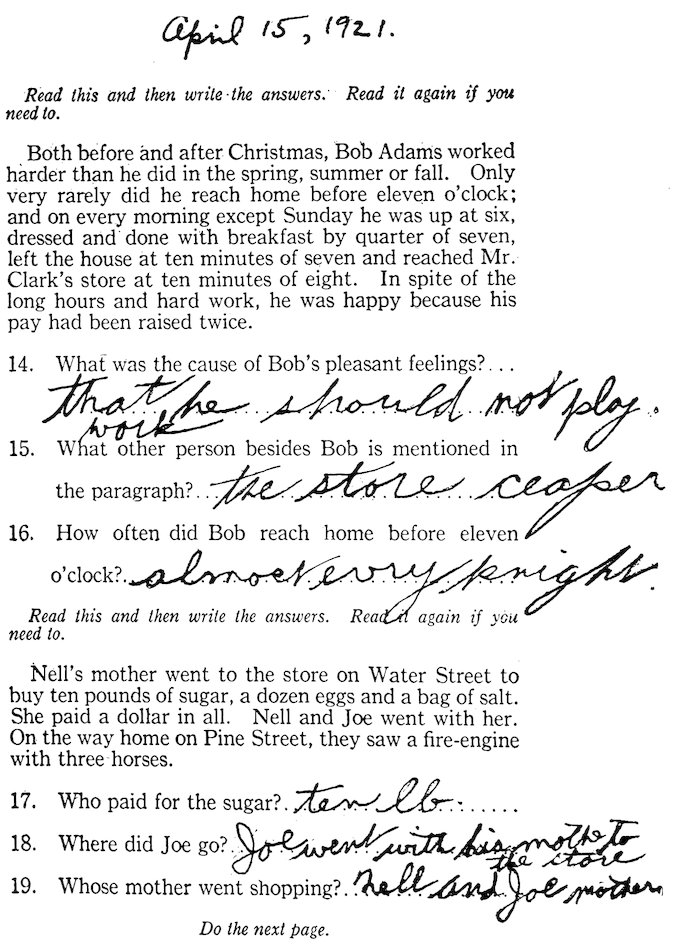 April 15, 1921.
Read this and then write the answers. Read it again if you
need to.
Both before and after Christmas, Bob Adams worked
harder than he did in the spring, summer or fall. Only
very rarely did he reach home before eleven o'clock;
and on every morning except Sunday he was up at six,
dressed and done with breakfast by quarter of seven,
left the house at ten minutes of seven and reached Mr.
Clark's store at ten minutes of eight. In spite of the
long hours and hard work, he was happy because his
pay had been raised twice.
14. What was the cause of Bob's pleasant feelings?...
that he should not play.
work
15. What other person besides Bob is mentioned in
the paragraph?.. the store ceaper
16. How often did Bob reach home before eleven
o'clock?. almost evry knight.
Read this and then write the answers. Read it again if you
need to.
Nell's mother went to the store on Water Street to
buy ten pounds of sugar, a dozen eggs and a bag of salt.
She paid a dollar in all. Nell and Joe went with her.
On the way home on Pine Street, they saw a fire-engine
with three horses.
17. Who paid for the sugar?. ten lb.......
18. Where did Joe go?. Joe went with his mothe to
the store
19. Whose mother went shopping?.. nell and Joe mother
Do the next page.